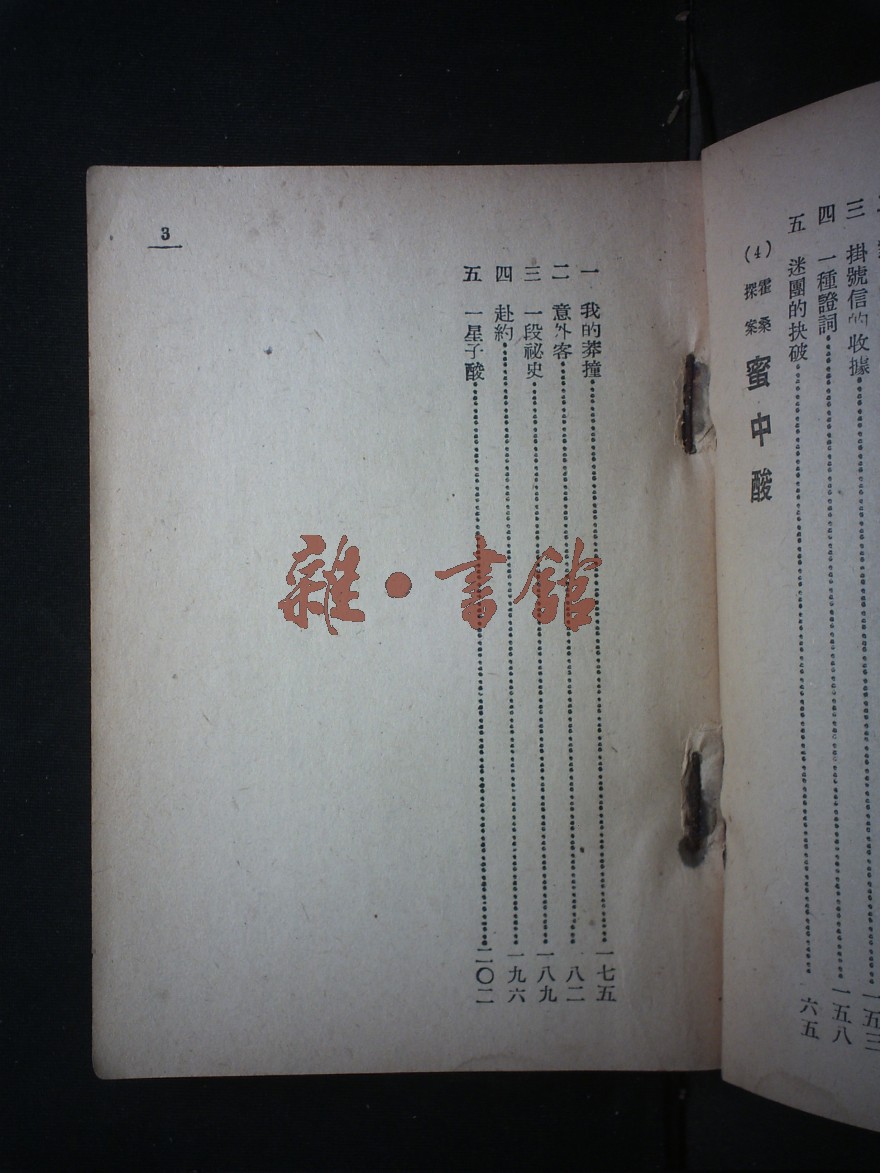 三 掛號信的收據 一五三
四 一種證詞 一五八
五 迷團的抉破 六五
(4) 霍桑探案 蜜中酸
3
一 我的莽撞 一七五
二 意外客 八二
三 一段祕史 一八九
四 赴約 一九六
五 一星子酸 二〇二
雜·書館